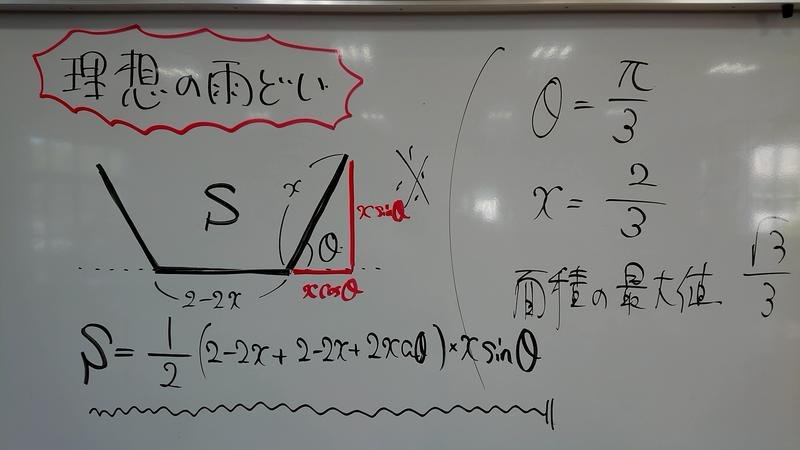 理想の雨どい
S
x
θ
x sinθ
2-2x
x cosθ
S = 1/2 (2-2x + 2-2x + 2x cosθ) × x sinθ
θ = π/3
x = 2/3
面積の最大値 √3/3